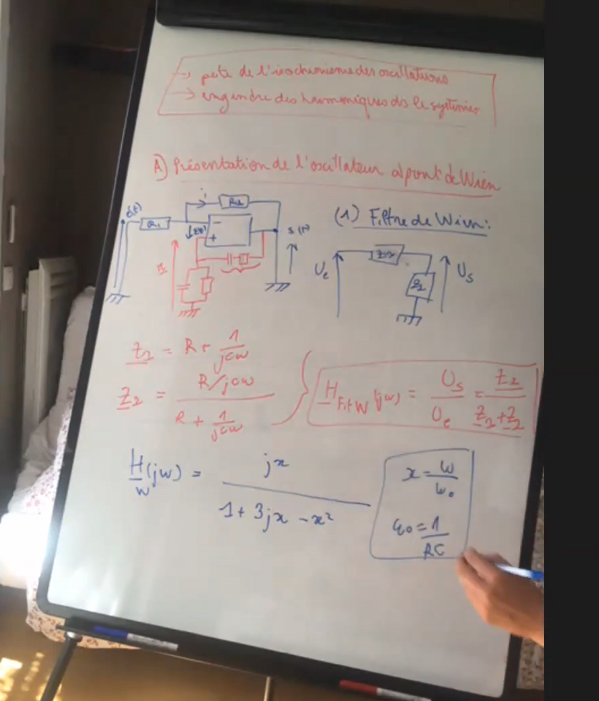 → perte de l'isochronisme des oscillations
→ engendre des harmoniques ds le système
A) Présentation de l'oscillateur à pont de Wien
e(t)
R1
i
R2
-
+
s(t)
(1) Filtre de Wien:
Ue
Us
Z2
Z2 = R + 1/jcw
Z2 = R/jcw / R + 1/jcw
H Filt W (jw) = Us/Ue = Z2/Z2+Z2
H w (jw) = jx / 1+3jx-x²
x = w/w0
w0 = 1/RC